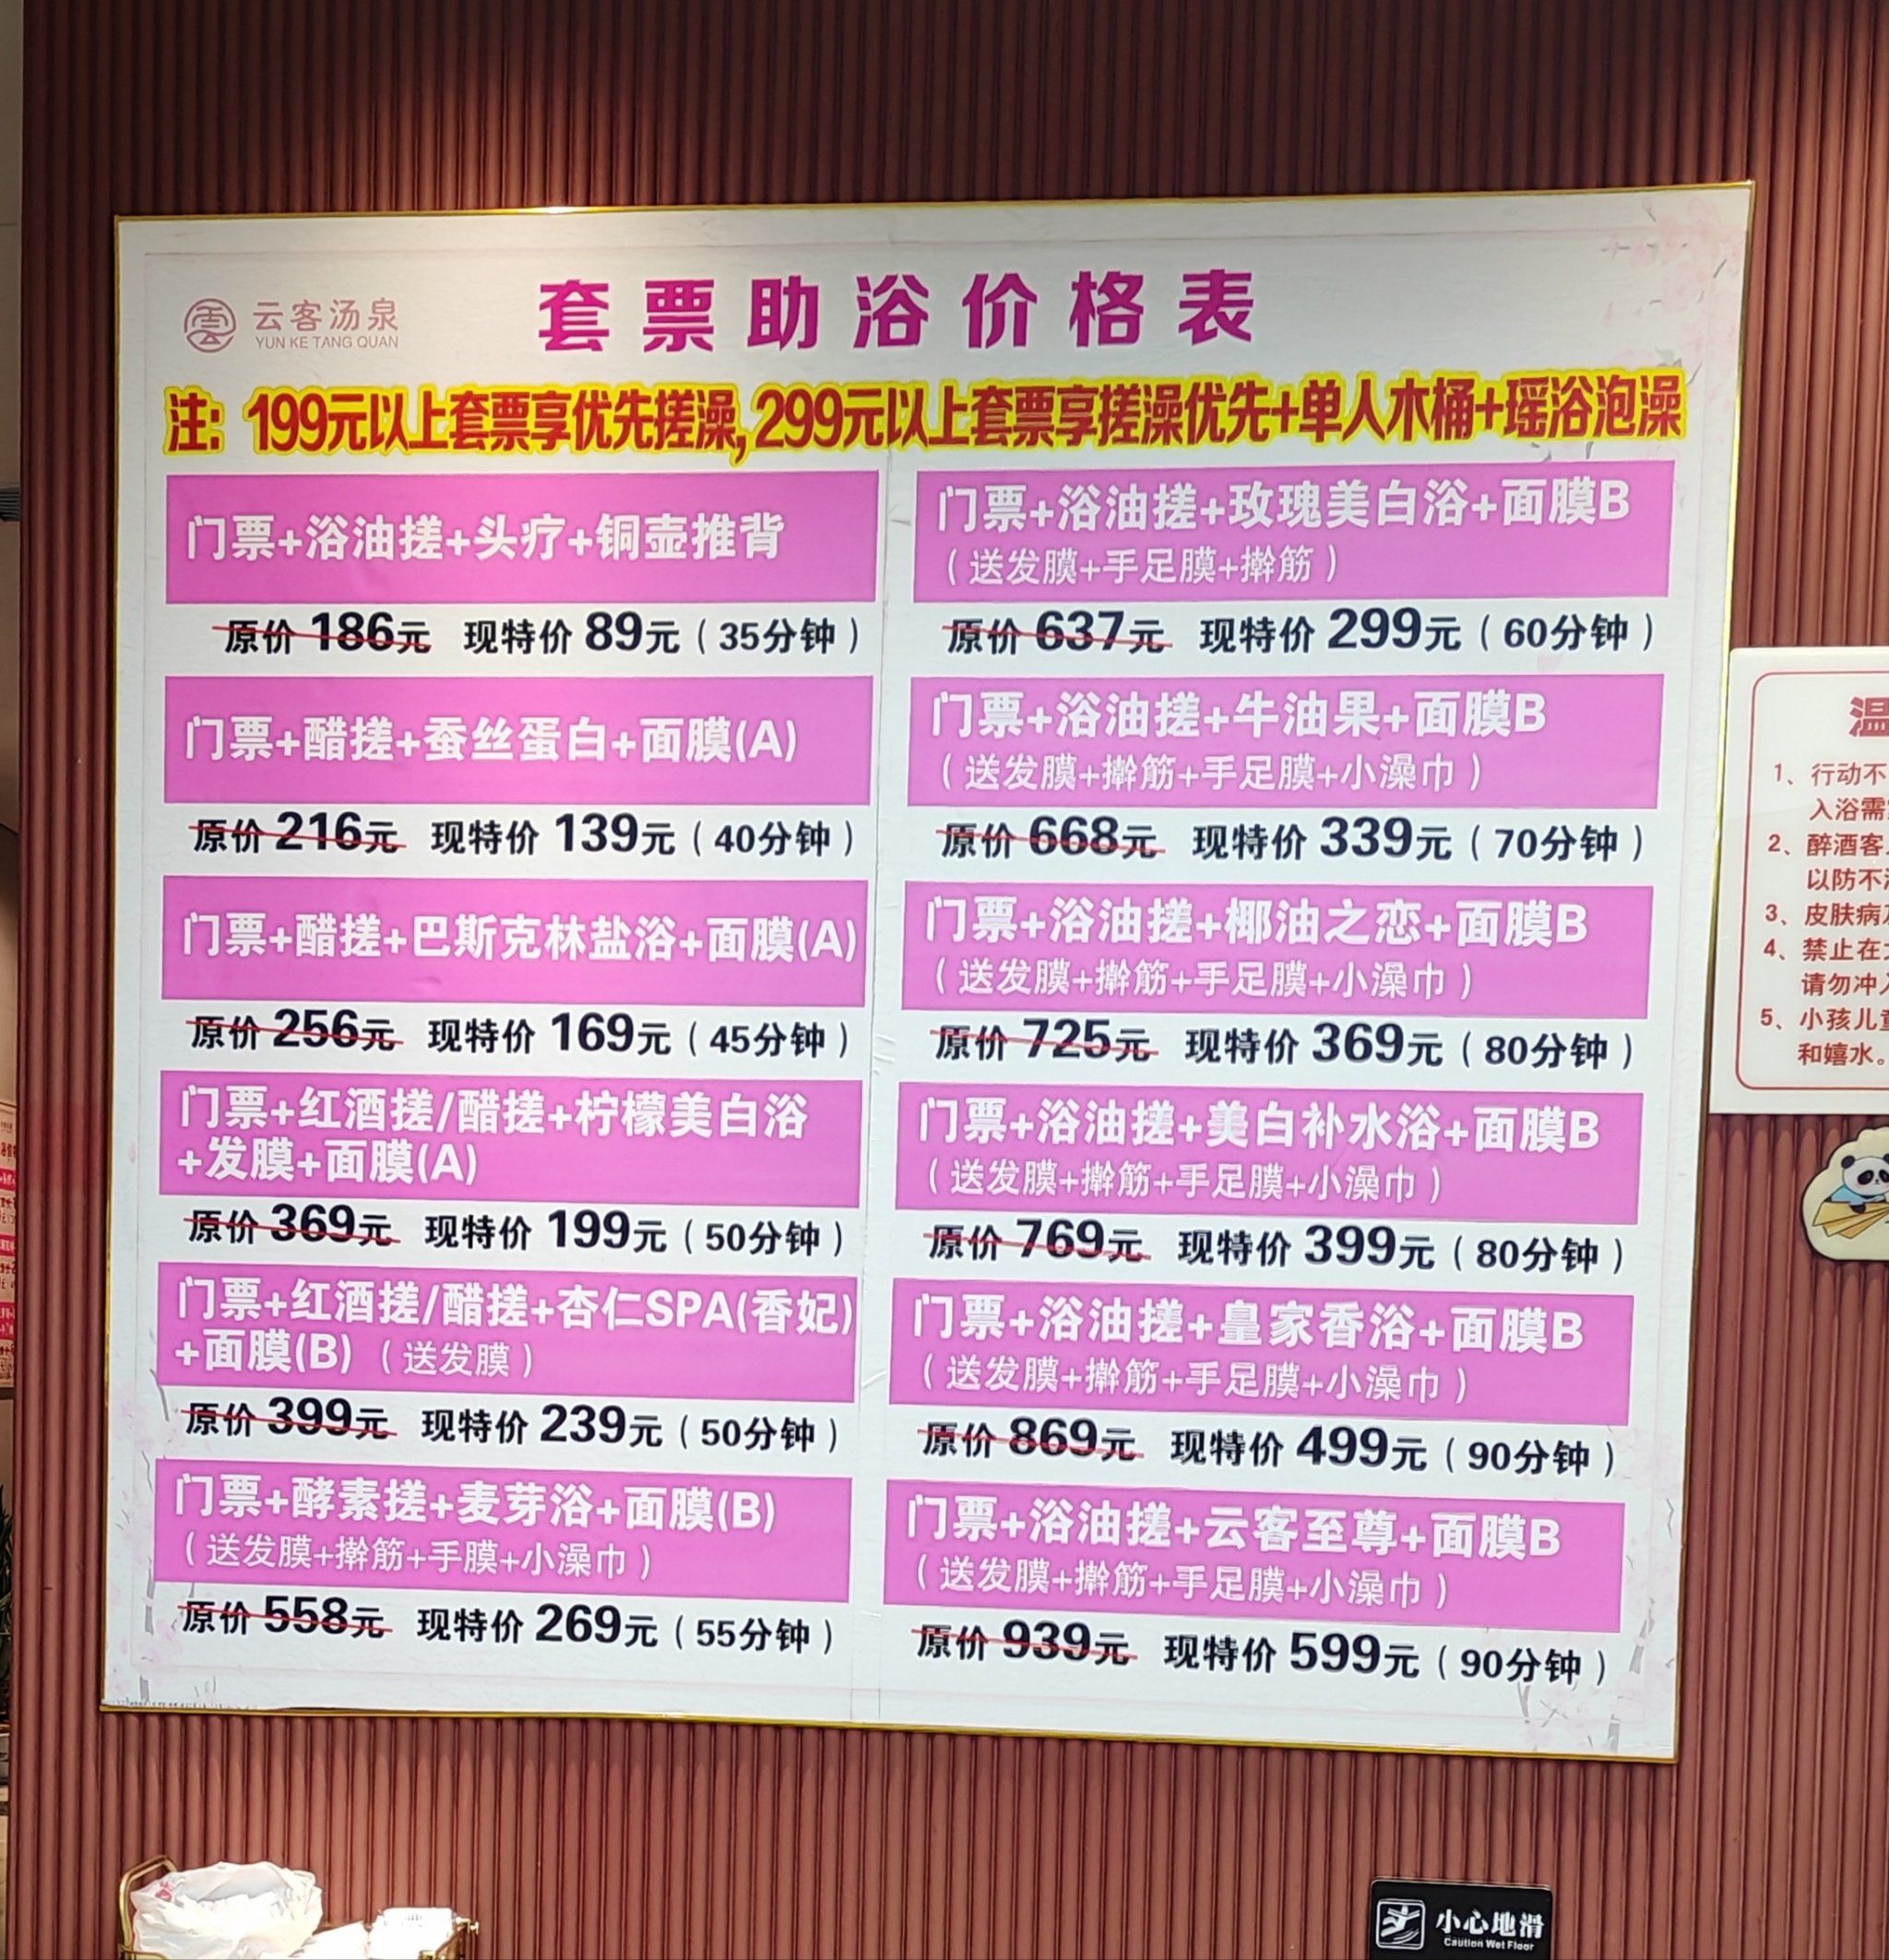 云客汤泉
YUN KE TANG QUAN
套票助浴价格表
注: 199元以上套票享优先搓澡,299元以上套票享搓澡优先+单人木桶+瑶浴泡澡
门票+浴油搓+头疗+铜壶推背
原价 186元 现特价 89元（35分钟）
门票+醋搓+蚕丝蛋白+面膜(A)
原价 216元 现特价 139元（40分钟）
门票+醋搓+巴斯克林盐浴+面膜(A)
原价 256元 现特价 169元（45分钟）
门票+红酒搓/醋搓+柠檬美白浴
+发膜+面膜(A)
原价 369元 现特价 199元（50分钟）
门票+红酒搓/醋搓+杏仁SPA(香妃)
+面膜(B)（送发膜）
原价 399元 现特价 239元（50分钟）
门票+酵素搓+麦芽浴+面膜(B)
（送发膜+擀筋+手膜+小澡巾）
原价 558元 现特价 269元（55分钟）
门票+浴油搓+玫瑰美白浴+面膜B
（送发膜+手足膜+擀筋）
原价 637元 现特价 299元（60分钟）
门票+浴油搓+牛油果+面膜B
（送发膜+擀筋+手足膜+小澡巾）
原价 668元 现特价 339元（70分钟）
门票+浴油搓+椰油之恋+面膜B
（送发膜+擀筋+手足膜+小澡巾）
原价 725元 现特价 369元（80分钟）
门票+浴油搓+美白补水浴+面膜B
（送发膜+擀筋+手足膜+小澡巾）
原价 769元 现特价 399元（80分钟）
门票+浴油搓+皇家香浴+面膜B
（送发膜+擀筋+手足膜+小澡巾）
原价 869元 现特价 499元（90分钟）
门票+浴油搓+云客至尊+面膜B
（送发膜+擀筋+手足膜+小澡巾）
原价 939元 现特价 599元（90分钟）
温
1、行动不
入浴需
2、醉酒客
以防不
3、皮肤病
4、禁止在
请勿冲
5、小孩儿
和嬉水。
小心地滑
Caution Wet Floor